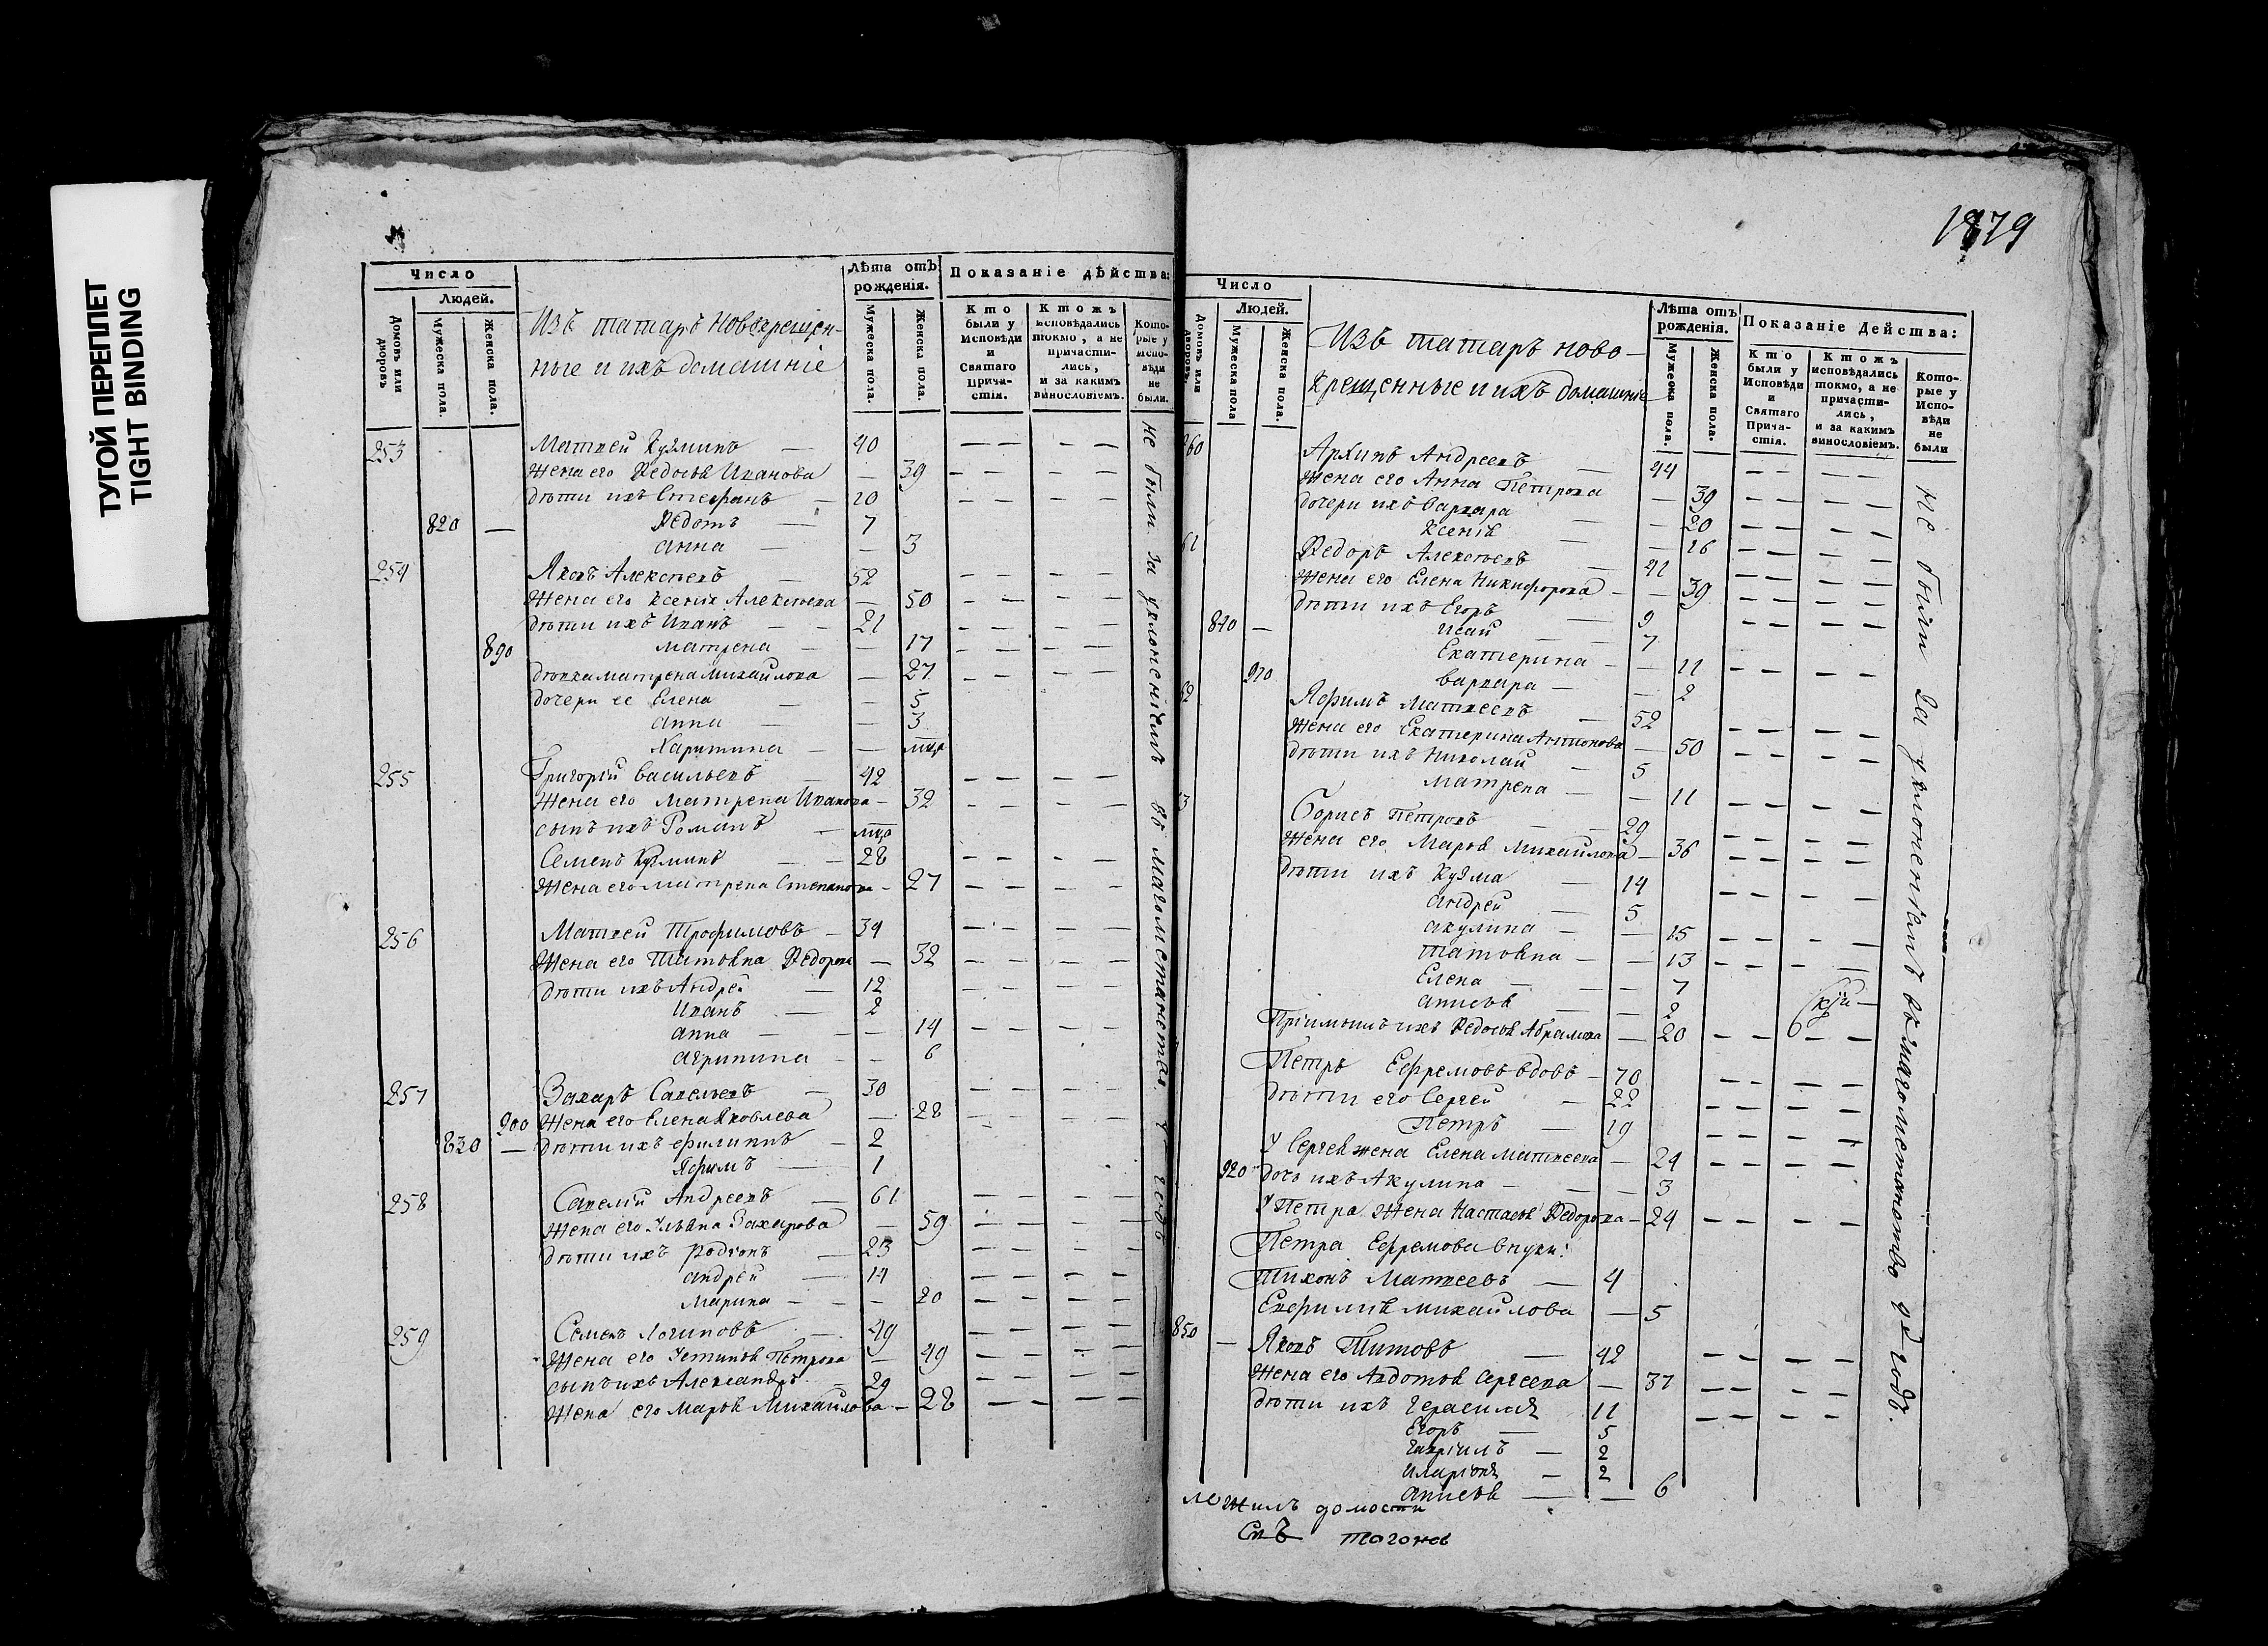 ТУГОЙ ПЕРЕПЛЕТ
TIGHT BINDING
1879
Число
Людей.
Домовъ или дворовъ
Мужеска пола.
Женска пола.
Изъ татаръ новокрещен-
ные и ихъ домашніе
Лѣта отъ рожденія.
Мужеска пола.
Женска пола.
Показаніе дѣйства:
Кто были у Исповѣди и Святаго Прича-стія.
Ктожъ исповѣдались токмо, а не причасти-лись, и за какимъ винословіемъ.
Кото-рые у Испо-вѣди не были.
253 Матвей Кузминъ — 40
Жена его Ѳедосья Иванова — 39
Дѣти ихъ Стефанъ — 10
820 — Ѳедотъ — 7
Анна — — 3
254 Яковъ Алексѣевъ — 52
Жена его Ксенія Алексѣева — 50
Дѣти ихъ Иванъ — — 21
890 Матрена — — 17
Дѣвка Матрена Михайлова — 27
Дочери ее Елена — — 5
Анна — — 3
Харитина — —
255 Григорій Васильевъ — 42
Жена его Матрена Иванова — 32
Сынъ ихъ Романъ —
Семенъ Кузминъ — — 28
Жена его Матрена Степанова — 27
256 Матвей Трофимовъ — 34
Жена его Татьяна Ѳедорова — 32
Дѣти ихъ Андрей — 12
Иванъ — 2
Анна — — — 14
Агрипина — — 6
257 Захаръ Савельевъ — 30
900 Жена его Елена Яковлева — 28
830 — Дѣти ихъ Филиппъ — 2
Яфимъ — 1
258 Савелій Андреевъ — 61
Жена его Ульяна Захарова — 59
Дѣти ихъ Родіонъ — 23
Андрей — 14
Марина — — — 20
259 Семенъ Логиновъ — 49
Жена его Устинья Петрова — 49
Сынъ ихъ Александръ — 29
Жена его Марья Михайлова — 28
не были за уклоненіемъ въ магометанство
Число
Людей.
Домовъ или дворовъ.
Мужеска пола
Женска пола.
Изъ татаръ ново-
крещенные и ихъ домашніе
Лѣта отъ рожденія.
Мужеска пола.
Женска пола.
Показаніе Действа:
Кто были у Исповѣди и Святаго Прича-стія.
Ктожъ исповѣдались токмо, а не причасти-лись, и за какимъ винословіемъ.
Кото-рые у Испо-вѣди не были
260 Архипъ Андреевъ — 44
Жена его Анна Петрова — 39
Дочери ихъ Варвара — — 20
Ксенія — — 16
61 Ѳедоръ Алексѣевъ — 41
Жена его Елена Никифорова — — 39
Дѣти ихъ Егоръ — 9
840 — Исай — — 7
Екатерина — — 11
910 Варвара — — 2
62 Яфимъ Матвеевъ — 52
Жена его Екатерина Антонова — 50
Дѣти ихъ Николай — 5
Матрена — — 11
3 Борисъ Петровъ — — 29
Жена его Марья Михайлова — 36
Дѣти ихъ Кузма — 14
Андрей — 5
Акулина — — 15
Татьяна — — 13
Елена — — — 7
Анисья — — 2
Ѳедосья Абрамова — 20
Петръ Ефремовъ вдовъ — 70
Дѣти его Сергей — 22
Петръ — 19
У Сергея жена Елена Матвеева — 24
920 Дочь ихъ Акулина — — — 3
У Петра жена Настасья Ѳедорова — 24
Петра Ефремова внуки:
Тихонъ Матвеевъ — 4
Евфимія Михайлова — 5
850 — Яковъ Титовъ — 42
Жена его Авдотья Сергеева — 37
Дѣти ихъ Герасимъ 11
Егоръ — 5
Гавріилъ — 2
Иларіонъ — 2
Анисья — — 6
не были за уклоненіемъ въ магометанство